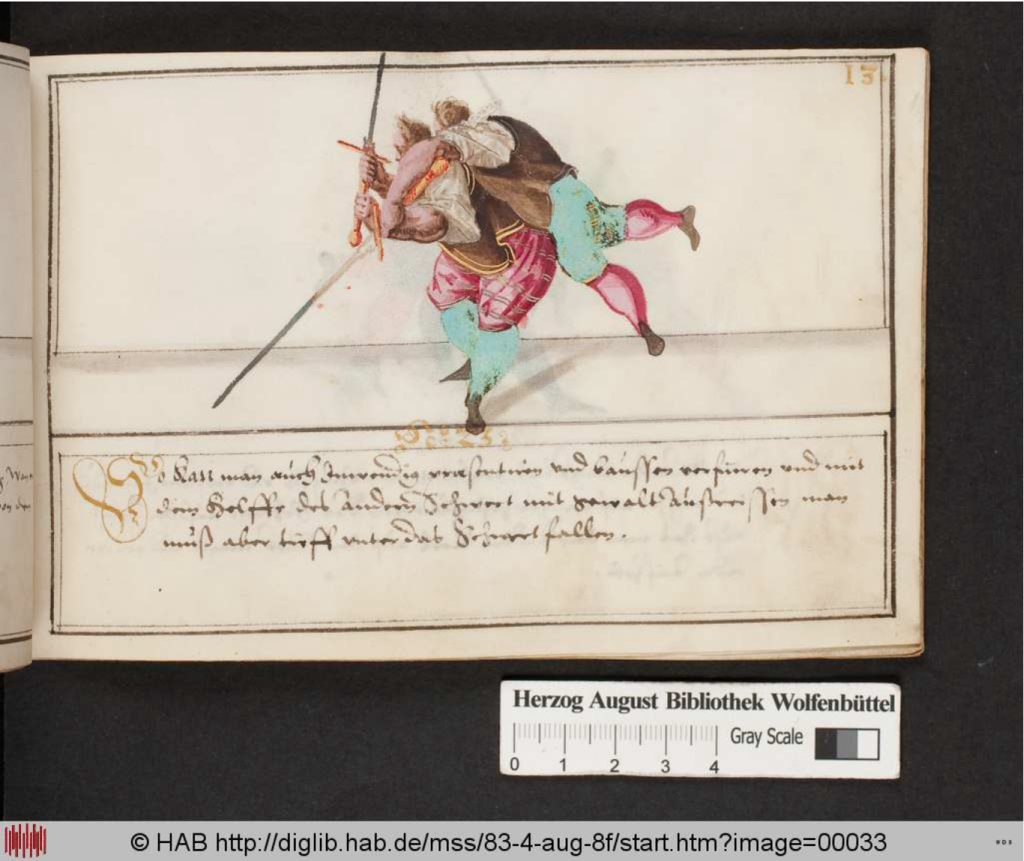 13
So kan man auch Inwendig præsentiren und baussen verfüren und mit
dem Helffte des andern Schwert mit gewalt außreissen man
muß aber tieff unter das Schwert fallen.
Herzog August Bibliothek Wolfenbüttel
Gray Scale
0 1 2 3 4
© HAB http://diglib.hab.de/mss/83-4-aug-8f/start.htm?image=00033